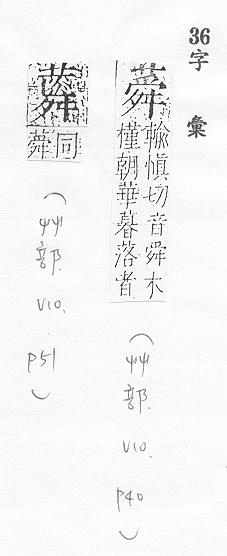 36字彙
蕣
輸慎切音舜木
槿朝華暮落者
(艸部. V10. P40)
同
蕣
(艸部. V10. P51)